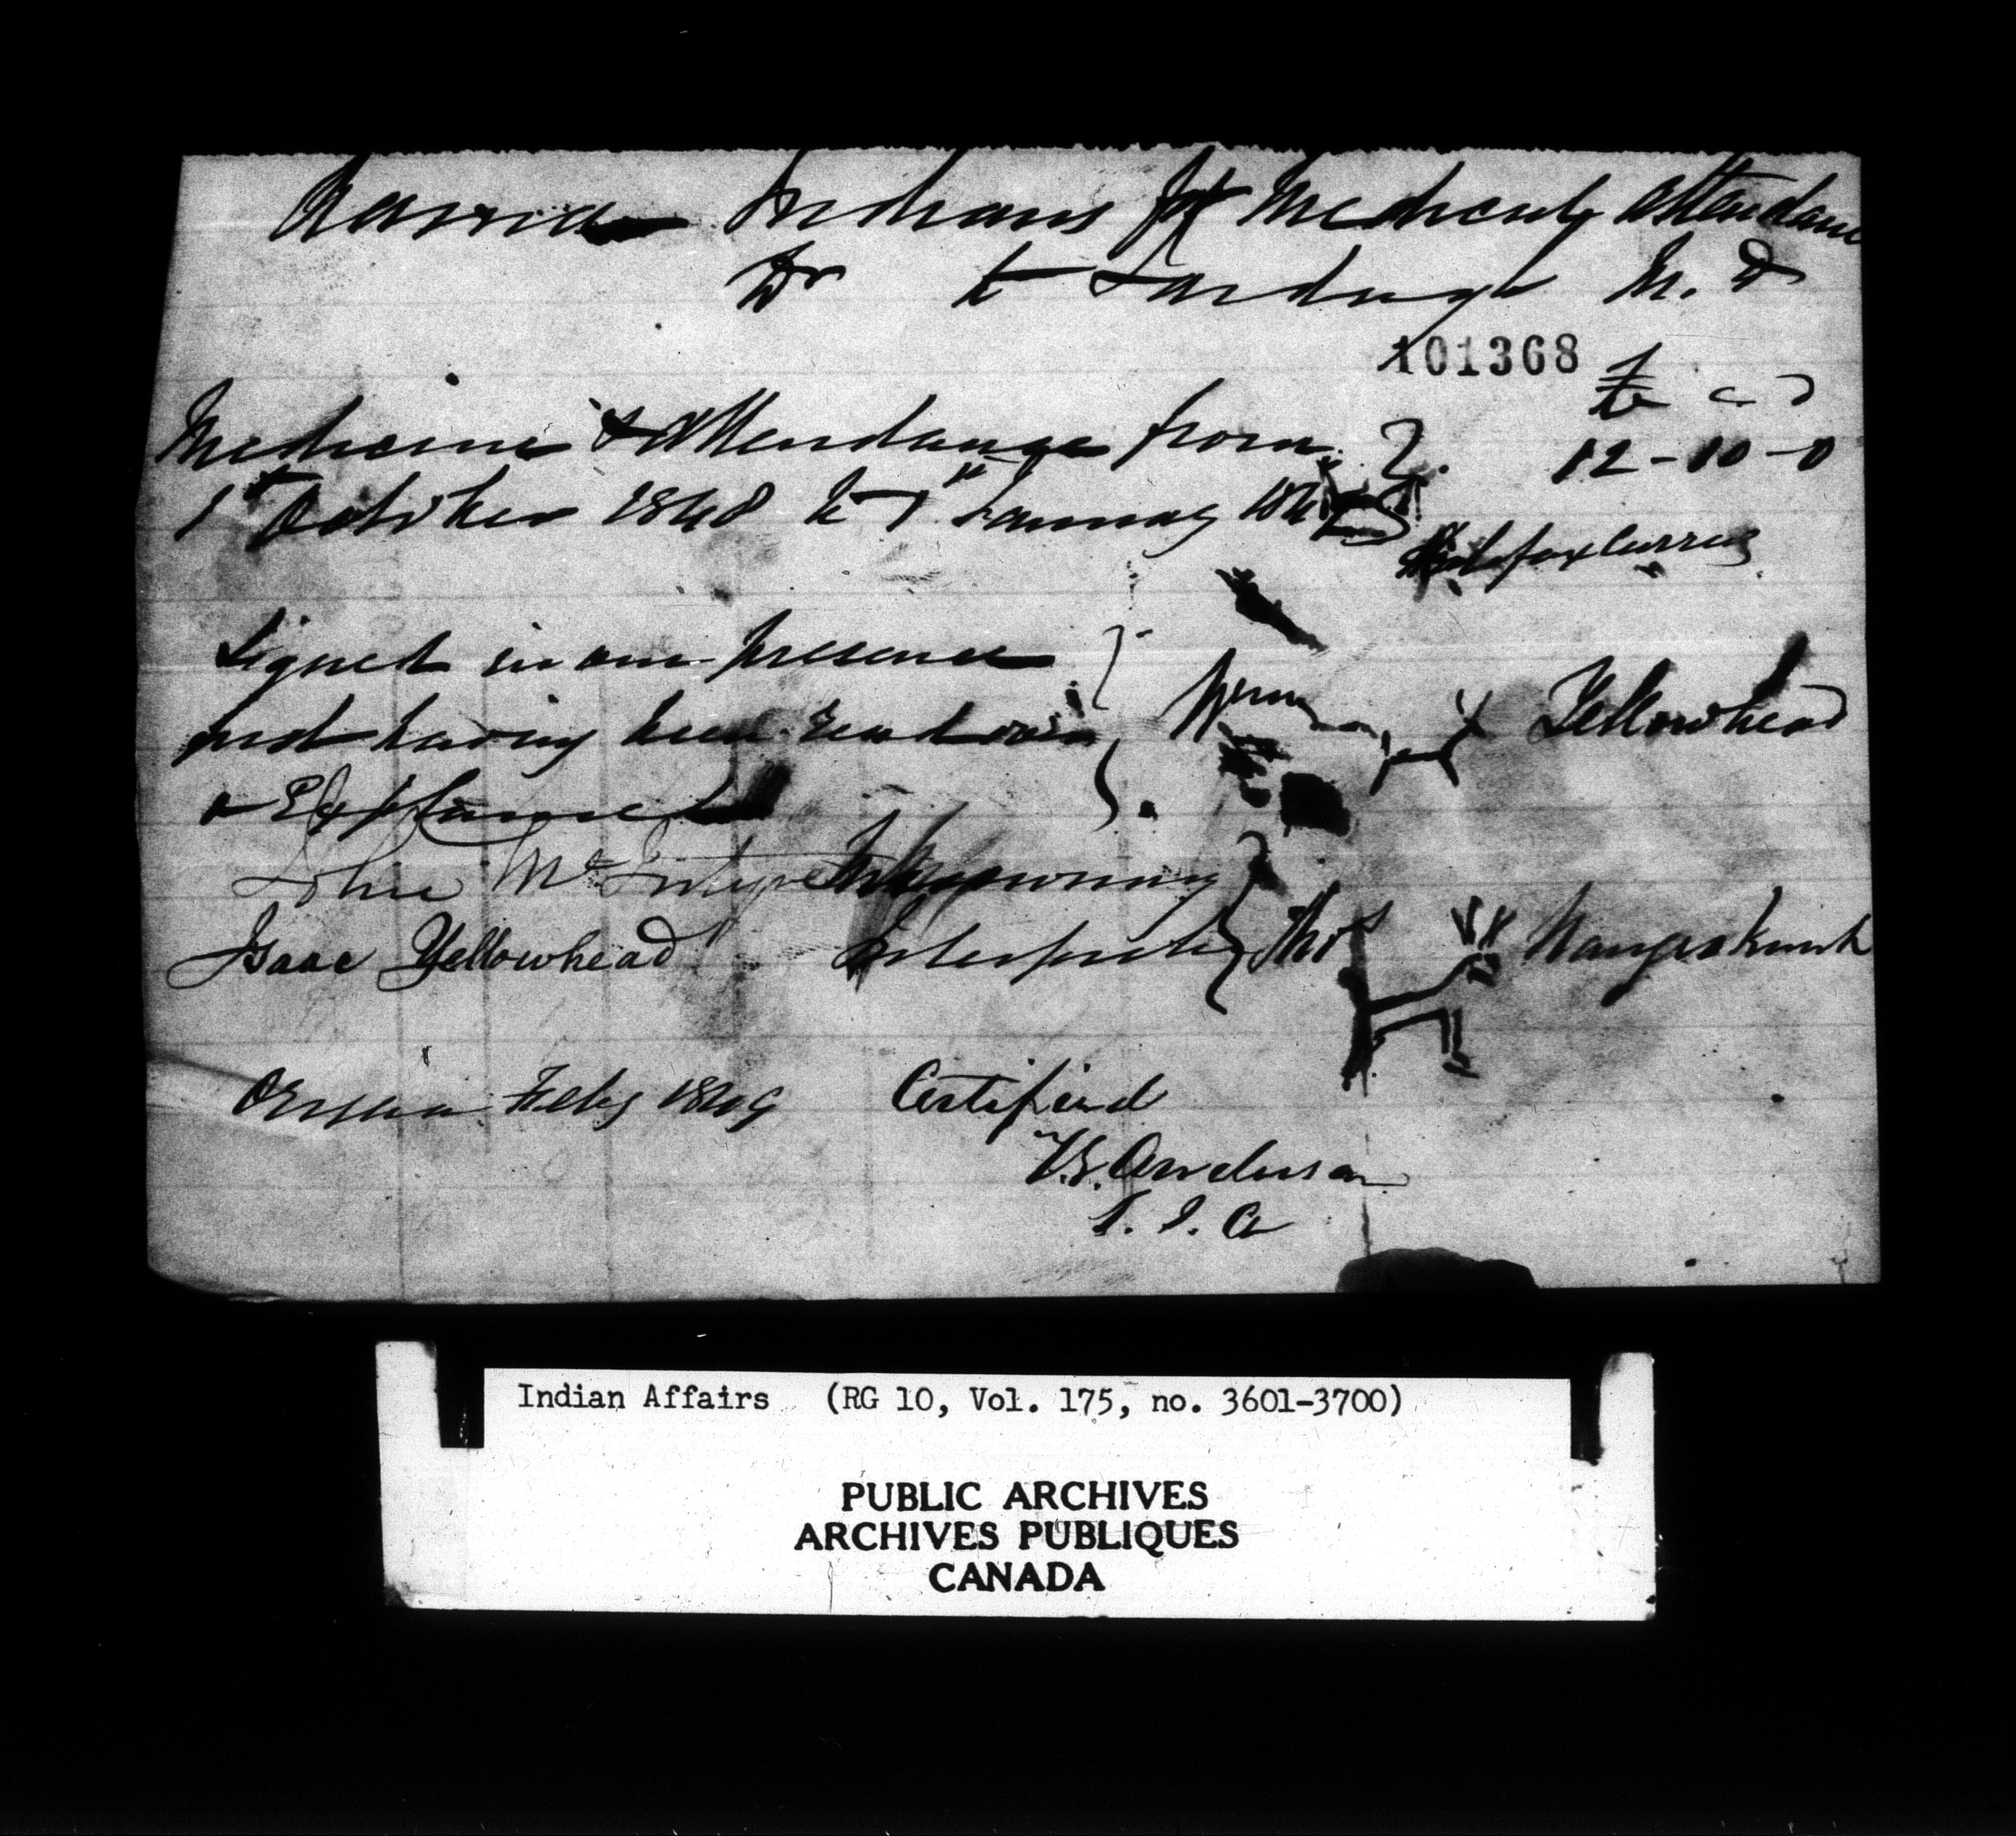 Narrid Indians for Medicines attendance
Dr to Lardugh M. D
101368
£ s d
Medicine & Attendance from
1st October 1848 to 1st January 184 12-10-0
Halifax Currency
Signed in our presence
and having been read over
& Explained
Wm Yellowhead
John McIntyre
Isaac Yellowhead Interpreter
Thos Naingishkunk
Orillia Feby 1849 Certified
T.G. Anderson
S. I. A
Indian Affairs (RG 10, Vol. 175, no. 3601-3700)
PUBLIC ARCHIVES
ARCHIVES PUBLIQUES
CANADA